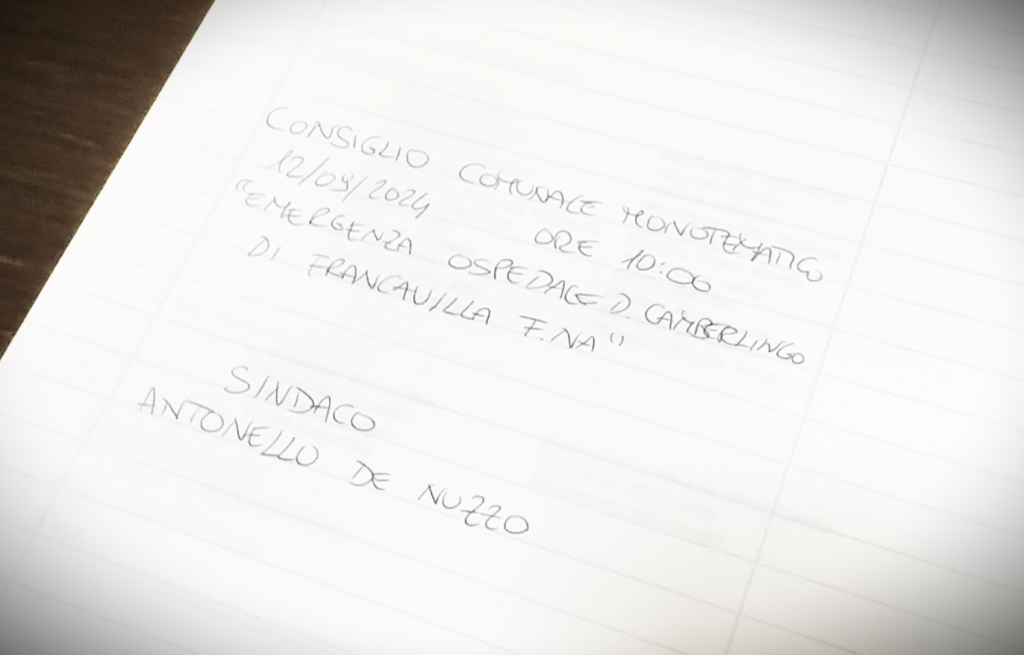 CONSIGLIO COMUNALE MONOTEMATICO
12/09/2024 ORE 10:00
"EMERGENZA OSPEDALE D. CAMBERLINGO
DI FRANCAVILLA F.NA"
SINDACO
ANTONELLO DE NUZZO